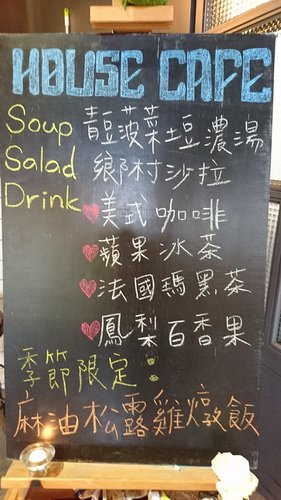 HOUSE CAFE
Soup 青豆菠菜土豆濃湯
Salad 鄉村沙拉
Drink ♥美式咖啡
♥蘋果冰茶
♥法國瑪黑茶
♥鳳梨百香果
季節限定：
麻油松露雞燉飯